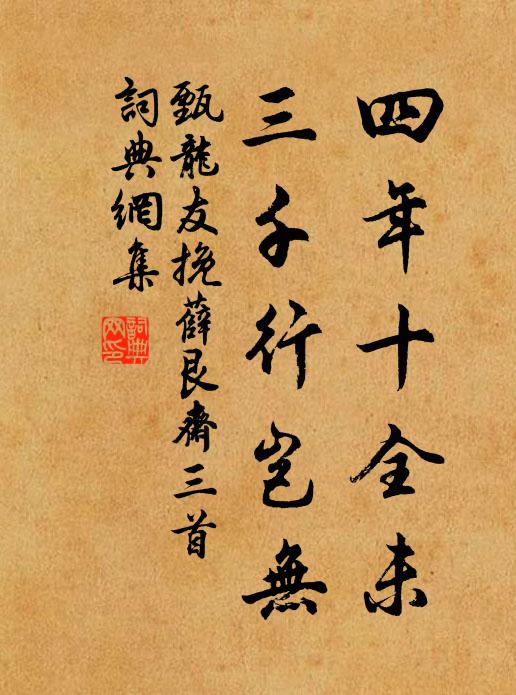 四年十全未
三千行岂無
甄龍友挽薛艮齋三首
詞典網集
詞典
网印